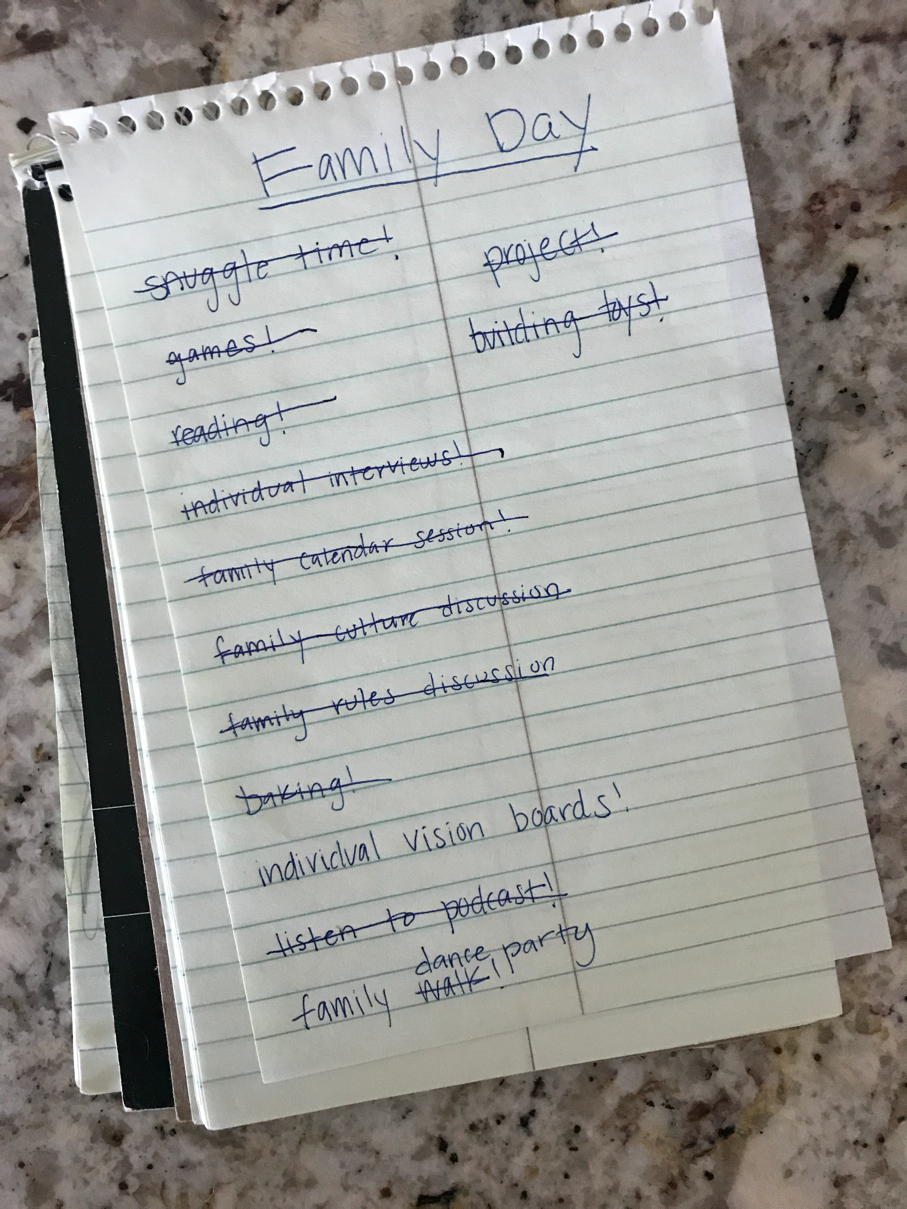 Family Day
snuggle time!
games!
reading!
individual interviews!
family calendar session!
family culture discussion
family rules discussion
baking!
individual vision boards!
listen to podcast!
dance party
family walk!
project!
building toys!